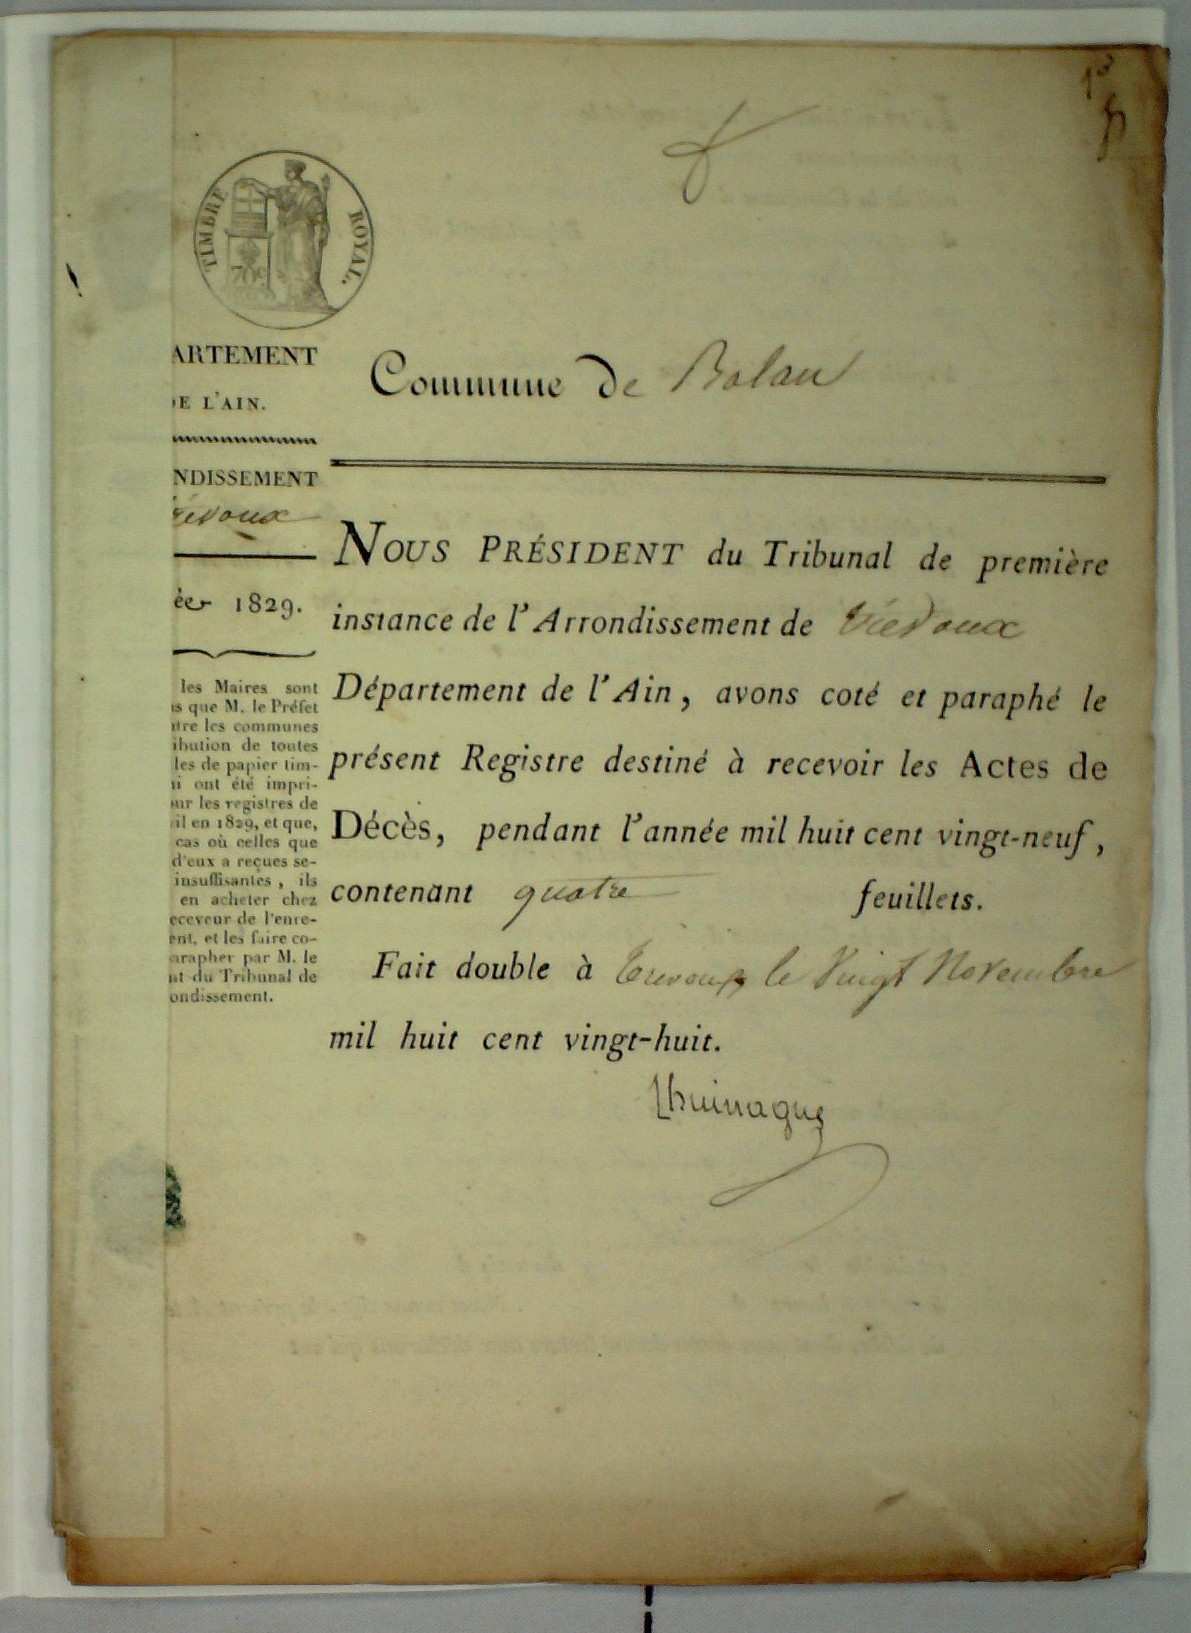 TIMBRE ROYAL.
70c
ARTEMENT
DE L'AIN.
NDISSEMENT
révoux
ée 1829.
les Maires sont
is que M. le Préfet
ntre les communes
ibution de toutes
les de papier tim-
ii ont été impri-
ur les registres de
il en 1829, et que,
cas où celles que
d'eux a reçues se-
insuffisantes, ils
en acheter chez
eceveur de l'enre-
ent, et les faire co-
arapher par M. le
nt du Tribunal de
ondissement.
Commune de Balan
NOUS PRÉSIDENT du Tribunal de première
instance de l'Arrondissement de Trévoux
Département de l'Ain, avons coté et paraphé le
présent Registre destiné à recevoir les Actes de
Décès, pendant l'année mil huit cent vingt-neuf,
contenant quatre feuillets.
Fait double à Trevoux le Vingt Novembre
mil huit cent vingt-huit.